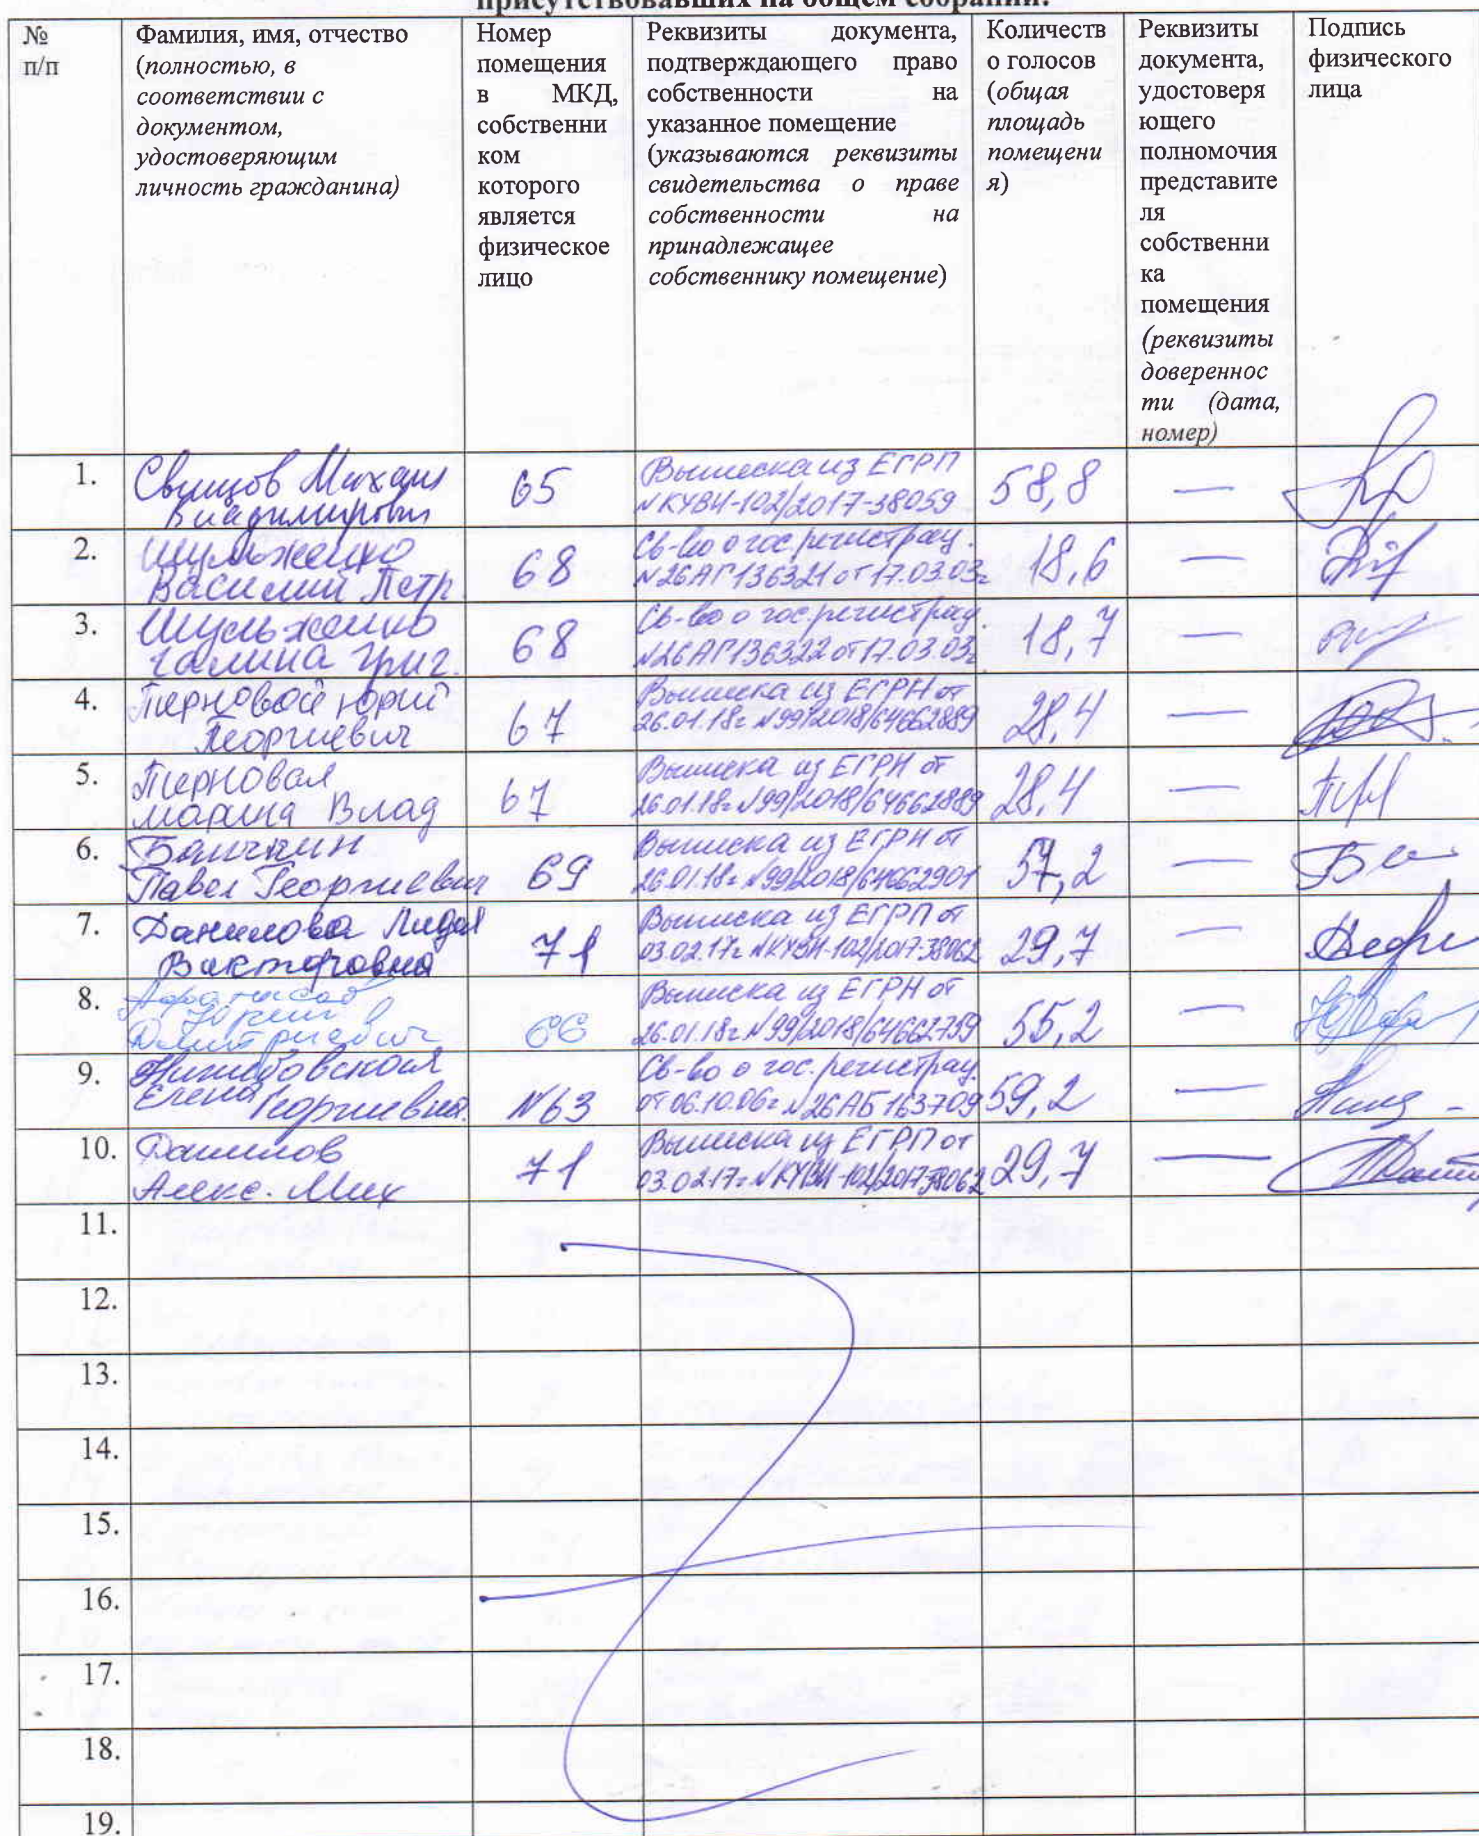 присутствовавших на общем собрании:
№
п/п
Фамилия, имя, отчество
(полностью, в
соответствии с
документом,
удостоверяющим
личность гражданина)
Номер
помещения
в МКД,
собственни
ком
которого
является
физическое
лицо
Реквизиты документа,
подтверждающего право
собственности на
указанное помещение
(указываются реквизиты
свидетельства о праве
собственности на
принадлежащее
собственнику помещение)
Количеств
о голосов
(общая
площадь
помещени
я)
Реквизиты
документа,
удостоверя
ющего
полномочия
представите
ля
собственни
ка
помещения
(реквизиты
довереннос
ти (дата,
номер)
Подпись
физического
лица
1.
Свищов Михаил
Владимирович
65
Выписка из ЕГРП
№КУВИ-102/2017-38059
58,8
—
2.
Шульженко
Василий Петр.
68
Св-во о гос.регистрац.
№26АГ136321 от 17.03.03г
18,6
—
3.
Шульженко
Галина Григ.
68
Св-во о гос.регистрац.
№26АГ136322 от 17.03.03г
18,7
—
4.
Терновой Юрий
Георгиевич
67
Выписка из ЕГРН от
26.01.18г №99/2018/64662889
28,4
—
5.
Терновая
Марина Влад
67
Выписка из ЕГРН от
26.01.18г №99/2018/64662889
28,4
—
6.
Павел Георгиевич
69
Выписка из ЕГРН от
26.01.18г №99/2018/64662901
57,2
—
7.
Данилова Лидия
Викторовна
71
Выписка из ЕГРП от
03.02.17г №КУВИ-102/2017-38062
29,7
—
8.
Афанасов
Юрий
Дмитриевич
66
Выписка из ЕГРН от
26.01.18г №99/2018/64662759
55,2
—
9.
Елена Георгиевна.
№63
Св-во о гос.регистрац.
от 06.10.06г №26АБ163709
59,2
—
10.
Данилов
Алекс. Мих
71
Выписка из ЕГРП от
03.02.17г №КУВИ-102/2017-38062
29,7
—
11.
12.
13.
14.
15.
16.
17.
18.
19.